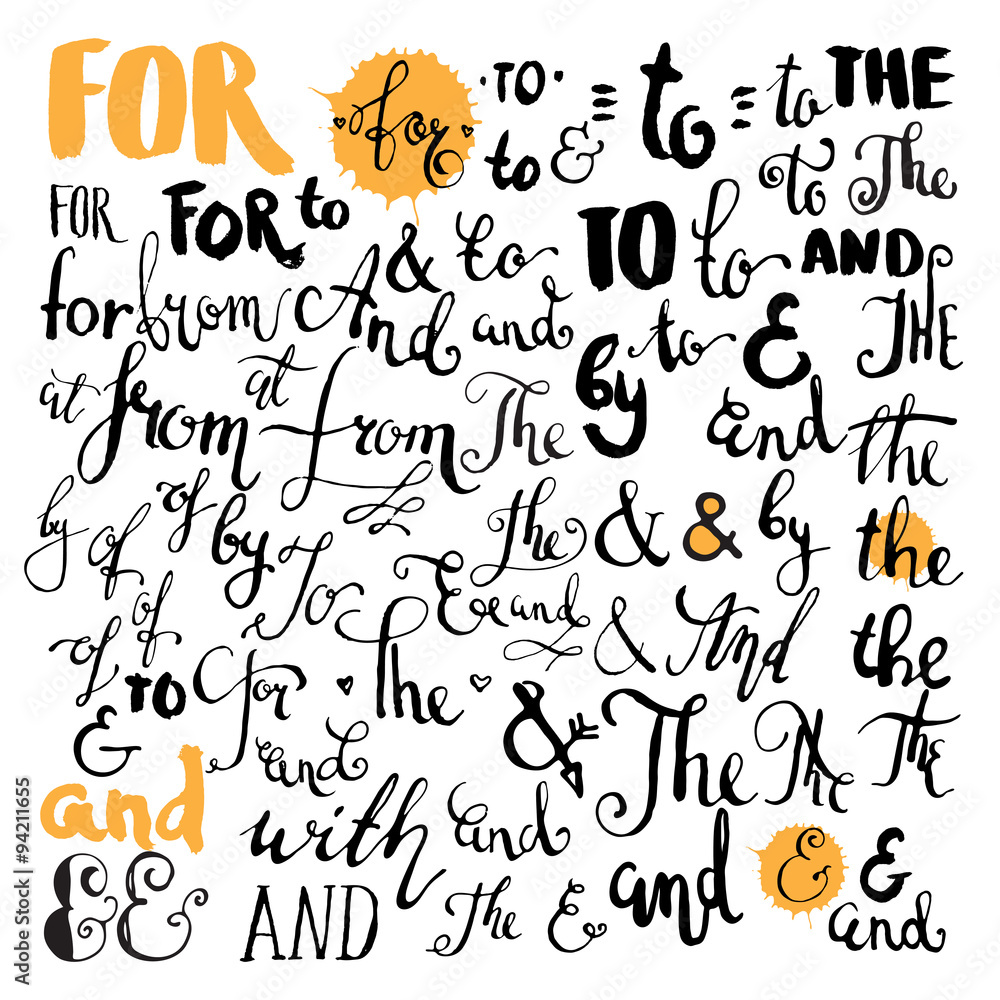 FOR for ·TO· = to = to THE
to & to The
FOR FOR to & to TO to AND
for from And and to & THE
at from at from The by and the
by of of by The & & by the
of To & and & And the
of TO for The & The The The
& and
and with and and & &
& & AND The & and
Adobe Stock | #94211655